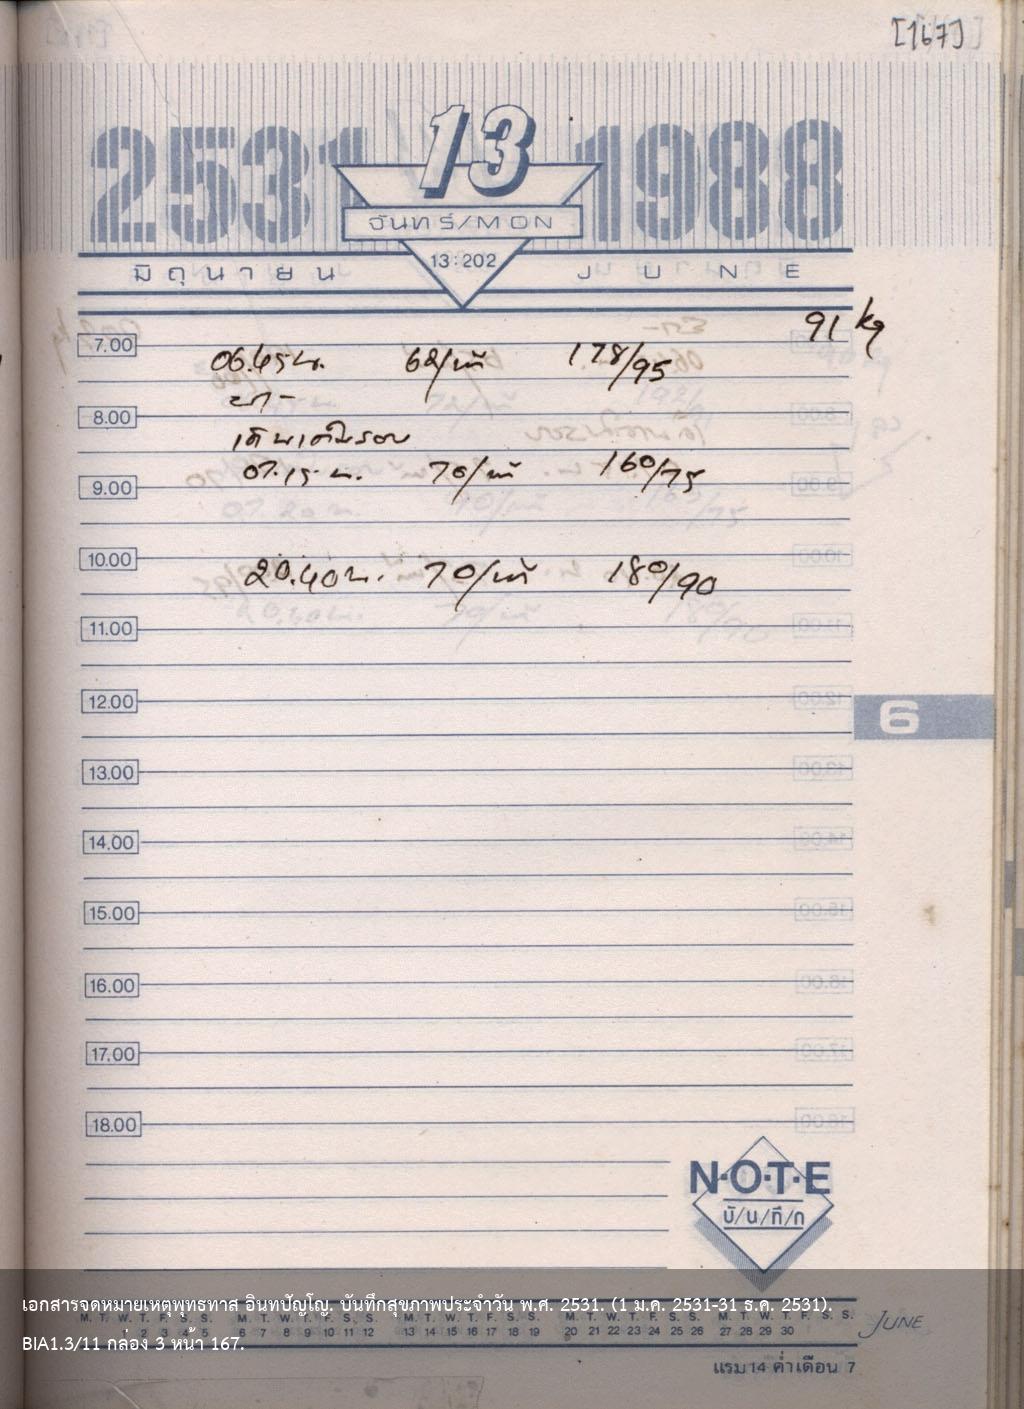 [167]
2531 13 1988
จันทร์/MON
13:202
มิถุนายน JUNE
91 kg
7.00
06.45 น. 178/95
8.00
เดินเต็มรอบ
07.15 น. 70/นาที 160/75
9.00
10.00
20.40 น. 70/นาที 180/90
11.00
12.00
6
13.00
14.00
15.00
16.00
17.00
18.00
N·O·T·E
บั/น/ทึ/ก
เอกสารจดหมายเหตุพุทธทาส อินทปัญโญ. บันทึกสุขภาพประจำวัน พ.ศ. 2531. (1 ม.ค. 2531-31 ธ.ค. 2531).
M. T. W. T. F. S. S. M. T. W. T. F. S. S. M. T. W. T. F. S. S. M. T. W. T. F. S. S. M. T. W. T. F. S. S.
1 2 3 4 5 6 7 8 9 10 11 12 13 14 15 16 17 18 19 20 21 22 23 24 25 26 27 28 29 30
JUNE
BIA1.3/11 กล่อง 3 หน้า 167.
แรม 14 ค่ำเดือน 7